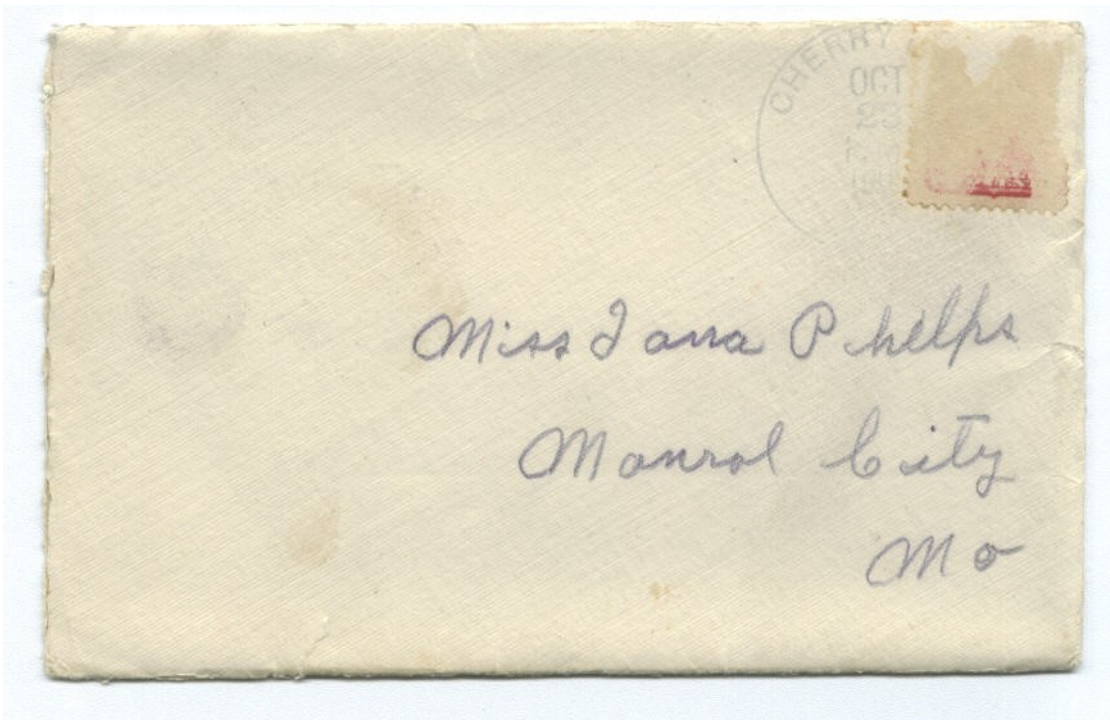 CHERRY
OCT
23
Miss Iona Phelps
Monroe City
Mo